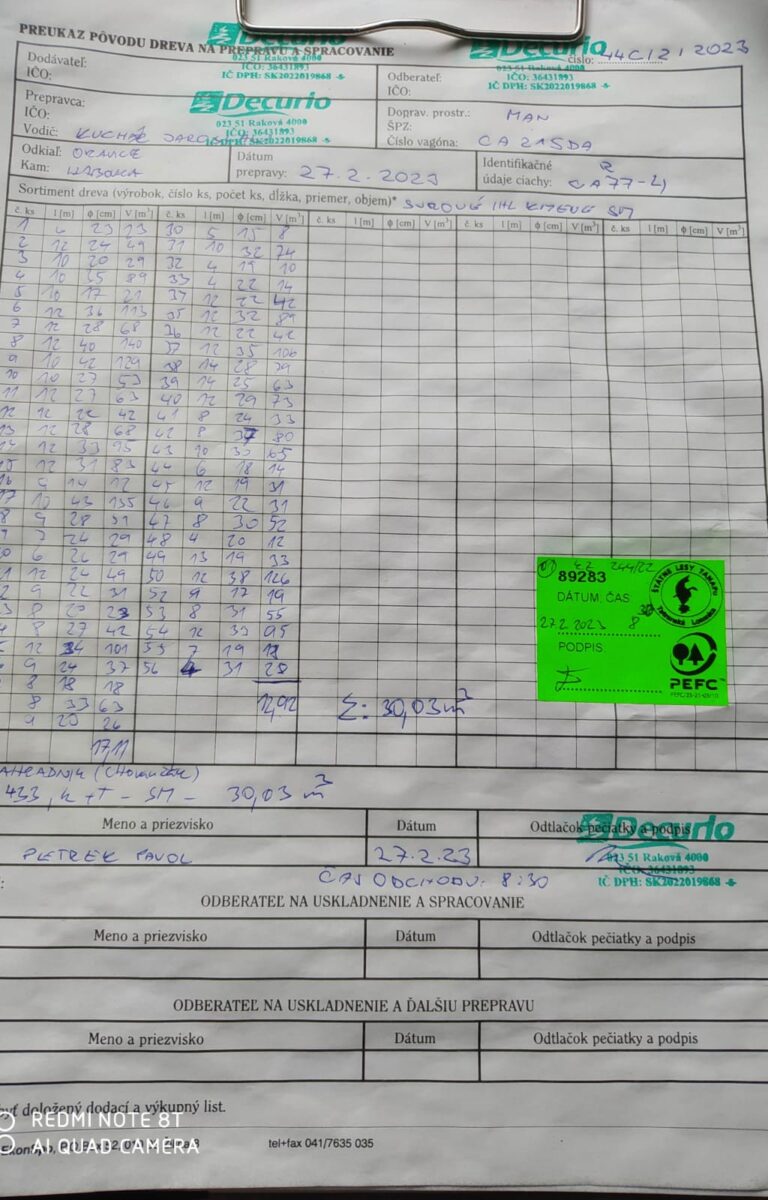 PREUKAZ PÔVODU DREVA NA PREPRAVU A SPRACOVANIE
číslo: 44C/2/2023
Decurio
023 51 Raková 4000
IČO: 36431893
IČ DPH: SK2022019868
Decurio
IČO: 36431893
IČ DPH: SK2022019868
Dodávateľ:
IČO:
Odberateľ:
IČO:
Decurio
023 51 Raková 4000
IČO: 36431893
IČ DPH: SK2022019868
Prepravca:
IČO:
Vodič: KUCHÁR
Doprav. prostr.: MAN
ŠPZ:
Číslo vagóna: CA 215DA
Odkiaľ: ORAVICE
Kam:
Dátum
prepravy: 27.2.2023
Identifikačné
údaje ciachy:
Sortiment dreva (výrobok, číslo ks, počet ks, dĺžka, priemer, objem)* SUROVÉ IHL KMENE SM
č. ks l [m] φ [cm] V [m³] č. ks l [m] φ [cm] V [m³] č. ks l [m] φ [cm] V [m³] č. ks l [m] φ [cm] V [m³]
1 6 23 23 30 5 15 8
2 12 24 49 31 10 32 74
3 10 20 29 32 4 19 10
4 10 35 89 33 4 22 14
5 10 17 21 34 12 22 42
6 12 36 113 35 12 32 89
7 12 28 68 36 12 22 42
8 12 40 140 37 12 35 106
9 10 42 129 38 14 28 79
10 10 27 53 39 14 25 63
11 12 27 63 40 12 29 73
12 12 22 42 41 8 24 33
12 28 68 42 8 37 80
12 33 95 43 10 30 65
12 31 83 44 6 18 14
9 14 12 45 12 19 31
10 43 135 46 9 22 31
9 28 51 47 8 30 52
7 24 29 48 4 20 12
6 26 29 49 13 19 33
12 24 49 50 12 38 126
9 22 31 52 9 17 19
8 20 23 53 8 31 55
8 27 42 54 12 33 95
12 34 101 55 7 19 18
9 24 37 56 4 31 28
8 18 18
12,92
Σ: 30,03 m³
8 33 63
9 20 26
17,11
89283
ŠTÁTNE LESY TANAPU
Tatranská Lomnica
DÁTUM, ČAS
27.2.2023 8 30
PODPIS
PEFC
433, K+T - SM - 30,03 m³
Meno a priezvisko Dátum Odtlačok pečiatky a podpis
PETREK PAVOL 27.2.23
Decurio
023 51 Raková 4000
IČO: 36431893
IČ DPH: SK2022019868
ČAS ODCHODU: 8:30
ODBERATEĽ NA USKLADNENIE A SPRACOVANIE
Meno a priezvisko Dátum Odtlačok pečiatky a podpis
ODBERATEĽ NA USKLADNENIE A ĎALŠIU PREPRAVU
Meno a priezvisko Dátum Odtlačok pečiatky a podpis
byť doložený dodací a výkupný list.
tel+fax 041/7635 035
REDMI NOTE 8T
AI QUAD CAMERA